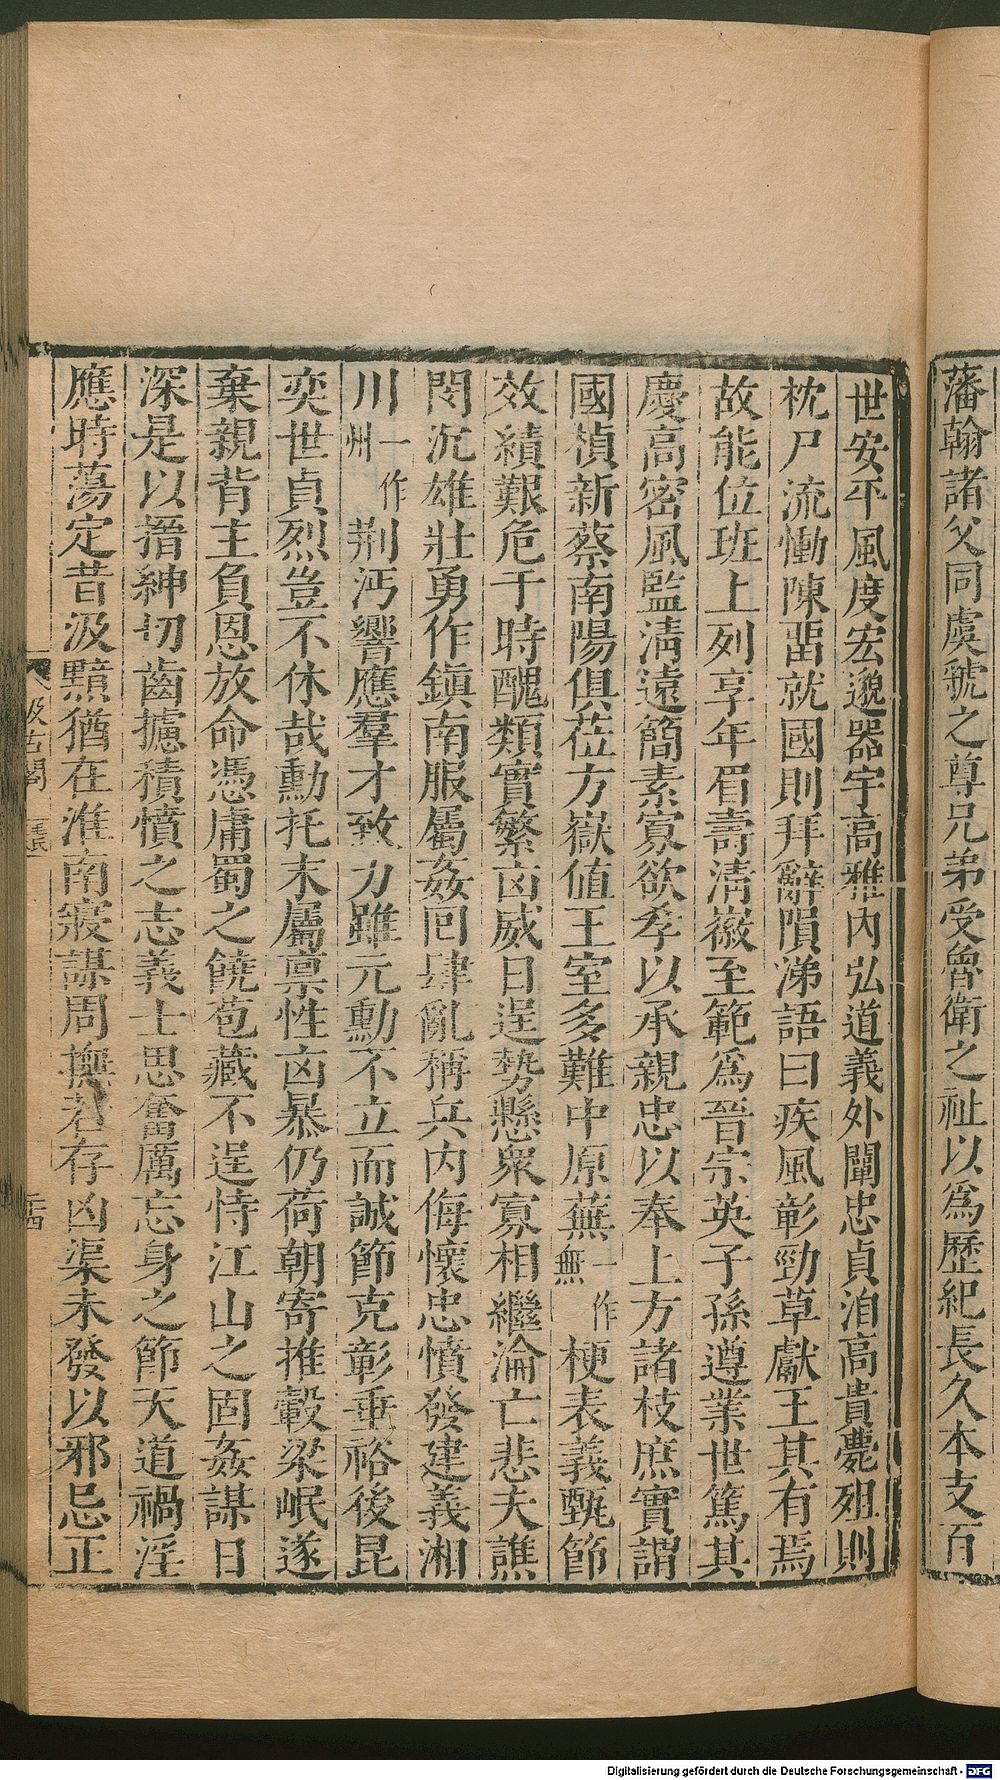 藩翰諸父同虞虢之尊兄弟受魯衛之祉以爲歷紀長久本支百
世安平風度宏邈器宇高雅內弘道義外闡忠貞洎高貴薨殂則
枕尸流慟陳畱就國則拜辭隕涕語曰疾風彰勁草獻王其有焉
故能位班上列享年眉壽淸徽至範爲晉宗英子孫遵業世篤其
慶高密風監淸遠簡素寡欲孝以承親忠以奉上方諸枝庶實謂
國楨新蔡南陽俱莅方嶽値王室多難中原蕪一作無梗表義甄節
效績艱危于時醜類實繁凶威日逞勢懸衆寡相繼淪亡悲夫譙
閔沉雄壯勇作鎭南服屬姦囘肆亂稱兵內侮懷忠憤發建義湘
川一作州荆沔響應羣才致力雖元勳不立而誠節克彰垂裕後昆
奕世貞烈豈不休哉勳托末屬禀性凶暴仍荷朝寄推轂梁岷遂
棄親背主負恩放命憑庸蜀之饒苞藏不逞恃江山之固姦謀日
深是以搢紳切齒攄積憤之志義士思奮厲忘身之節天道禍淫
應時蕩定昔汲黯猶在淮南寢謀周撫若存凶渠未發以邪忌正
汲古閣
Digitalisierung gefördert durch die Deutsche Forschungsgemeinschaft - DFG